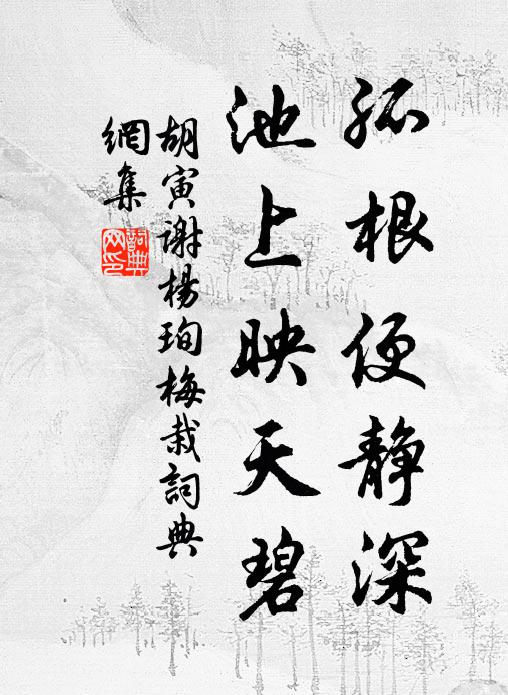 孤根便静深
池上映天碧
胡寅谢杨珣梅栽詞典
網集
詞典
网印